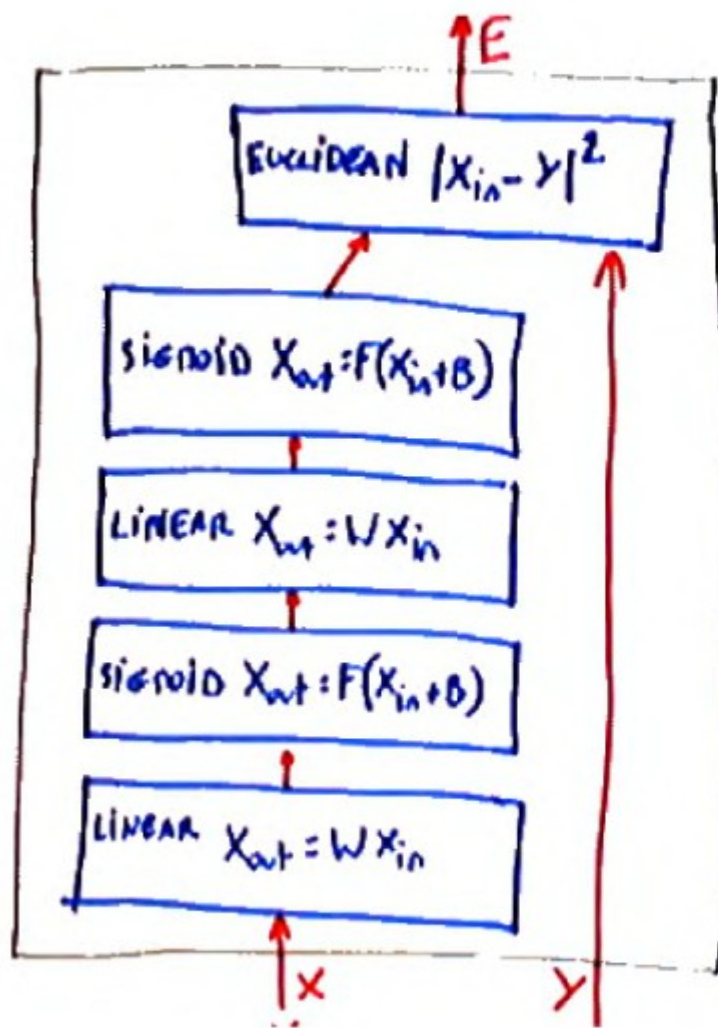 E
EUCLIDEAN |X_in - Y|²
SIGMOID X_out = F(X_in + B)
LINEAR X_out = W X_in
SIGMOID X_out = F(X_in + B)
LINEAR X_out = W X_in
X Y